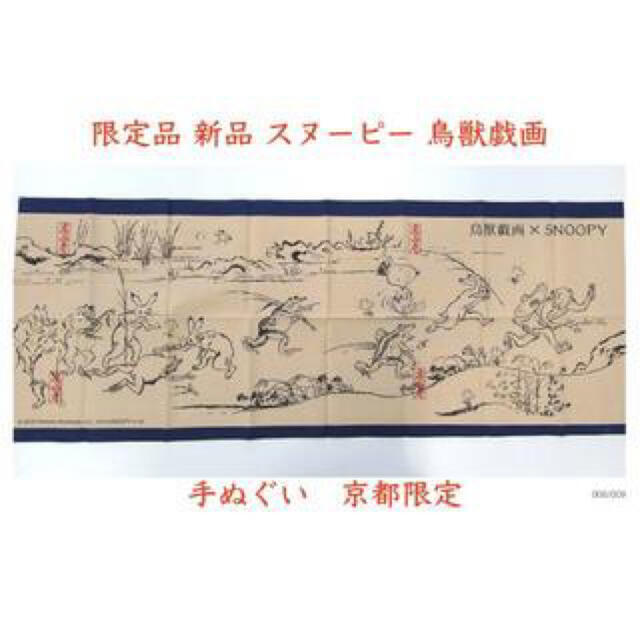 限定品 新品 スヌーピー 鳥獣戯画
鳥獣戯画 × SNOOPY
手ぬぐい 京都限定